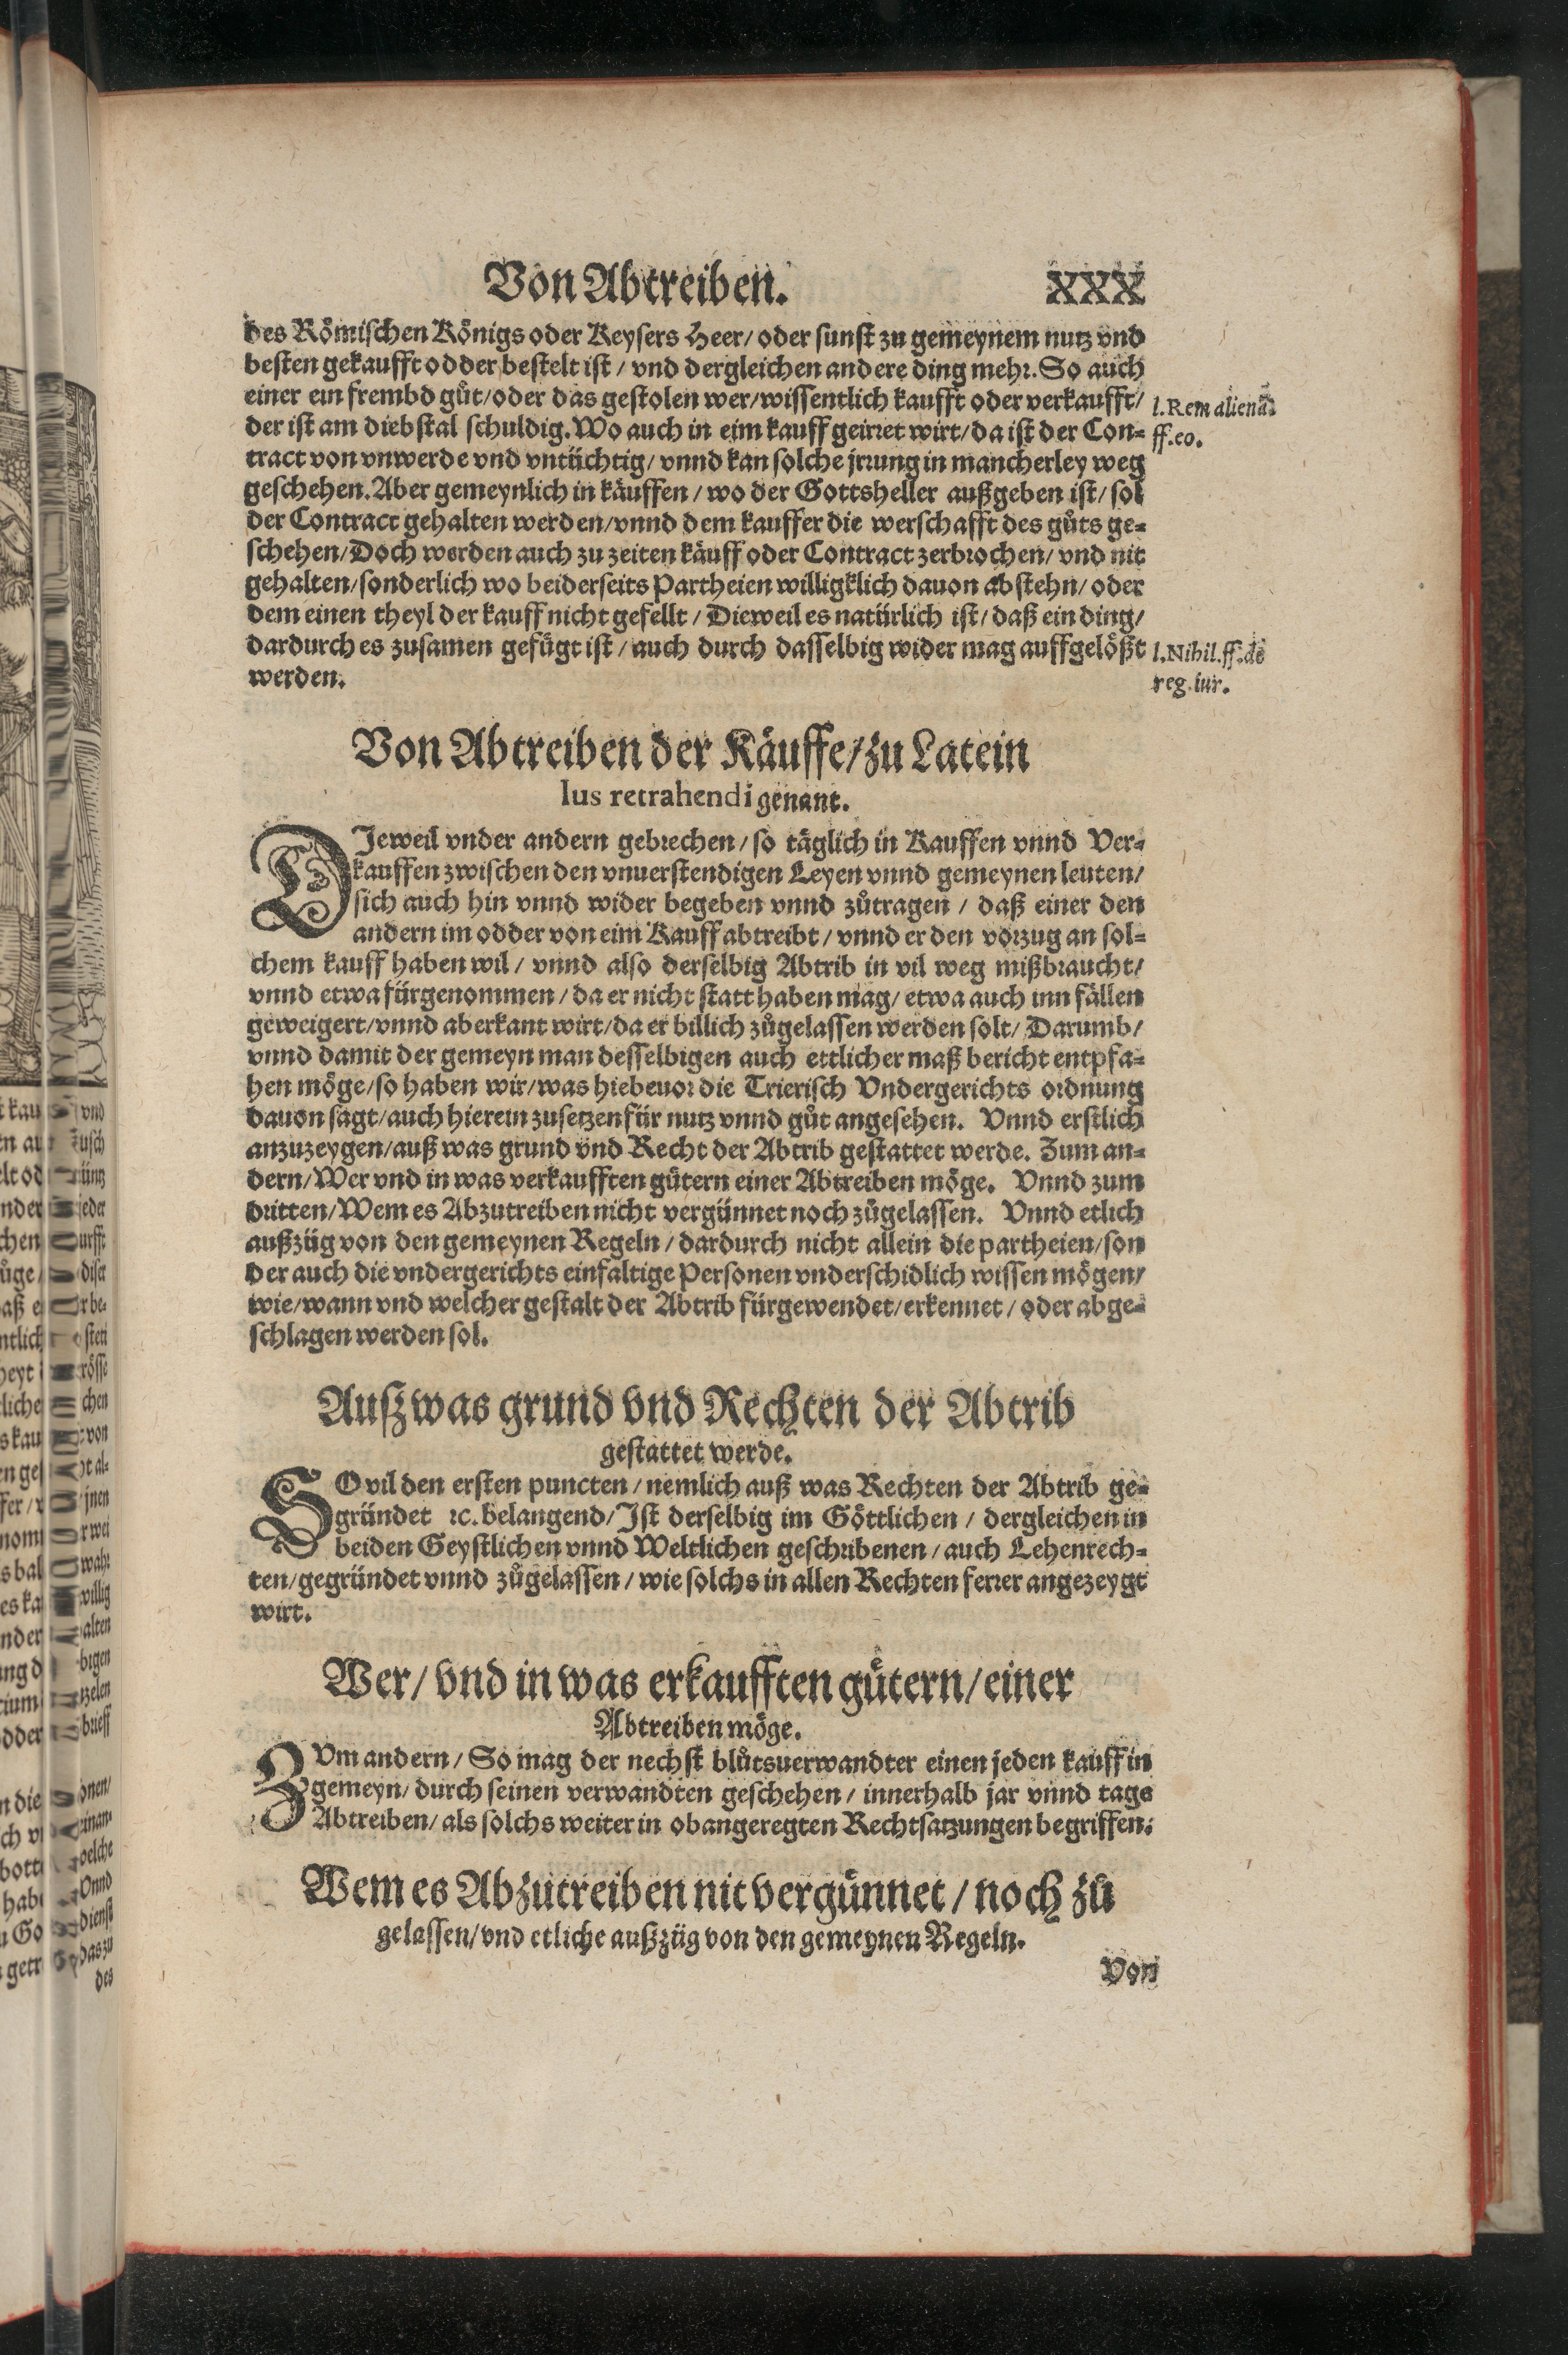 Von Abtreiben. XXX
des Römischen Königs oder Keysers Heer/ oder sunst zu gemeynem nutz vnd
besten gekaufft odder bestelt ist / vnd dergleichen andere ding mehr. So auch
einer ein frembd gůt/oder das gestolen wer/wissentlich kaufft oder verkaufft/
l. Rem alienā
der ist am diebstal schuldig. Wo auch in eim kauff geirret wirt/da ist der Con-
ff. eo.
tract von vnwerde vnd vntüchtig/ vnnd kan solche jrrung in mancherley weg
geschehen. Aber gemeynlich in käuffen / wo der Gottsheller außgeben ist/ sol
der Contract gehalten werden/vnnd dem kauffer die werschafft des gůts ge-
schehen/Doch werden auch zu zeiten käuff oder Contract zerbrochen/ vnd nit
gehalten/sonderlich wo beiderseits Partheien willigklich dauon abstehn/ oder
dem einen theyl der kauff nicht gefellt / Dieweil es natürlich ist/ daß ein ding/
dardurch es zusamen gefügt ist / auch durch dasselbig wider mag auffgelößt
l. Nihil. ff. de
werden.
reg. iur.
Von Abtreiben der Käuffe/zu Latein
Ius retrahendi genant.
DJeweil vnder andern gebrechen/ so täglich in Kauffen vnnd Ver-
kauffen zwischen den vnuerstendigen Leyen vnnd gemeynen leuten/
sich auch hin vnnd wider begeben vnnd zůtragen / daß einer den
andern im odder von eim Kauff abtreibt/ vnnd er den vorzug an sol-
chem kauff haben wil/ vnnd also derselbig Abtrib in vil weg mißbraucht/
vnnd etwa fürgenommen / da er nicht statt haben mag/ etwa auch inn fällen
geweigert/vnnd aberkant wirt/da er billich zůgelassen werden solt/ Darumb/
vnnd damit der gemeyn man desselbigen auch ettlicher maß bericht entpfa-
hen möge/so haben wir/was hiebeuor die Trierisch Vndergerichts ordnung
dauon sagt/auch hierein zusetzen für nutz vnnd gůt angesehen. Vnnd erstlich
anzuzeygen/auß was grund vnd Recht der Abtrib gestattet werde. Zum an-
dern/Wer vnd in was verkaufften gütern einer Abtreiben möge. Vnnd zum
dritten/Wem es Abzutreiben nicht vergünnet noch zůgelassen. Vnnd etlich
außzüg von den gemeynen Regeln / dardurch nicht allein die partheien/son
der auch die vndergerichts einfaltige Personen vnderschidlich wissen mögen/
wie/wann vnd welcher gestalt der Abtrib fürgewendet/erkennet / oder abge-
schlagen werden sol.
Auß was grund vnd Rechten der Abtrib
gestattet werde.
SO vil den ersten puncten / nemlich auß was Rechten der Abtrib ge-
gründet ꝛc. belangend/Jst derselbig im Göttlichen / dergleichen in
beiden Geystlichen vnnd Weltlichen geschribenen / auch Lehenrech-
ten/gegründet vnnd zůgelassen / wie solchs in allen Rechten ferrer angezeygt
wirt.
Wer/ vnd in was erkaufften gütern/einer
Abtreiben möge.
ZVm andern / So mag der nechst blůtsuerwandter einen jeden kauff in
gemeyn/ durch seinen verwandten geschehen / innerhalb jar vnnd tage
Abtreiben/ als solchs weiter in obangeregten Rechtsatzungen begriffen.
Wem es Abzutreiben nit vergünnet / noch zů
gelassen/vnd etliche außzüg von den gemeynen Regeln.
Von